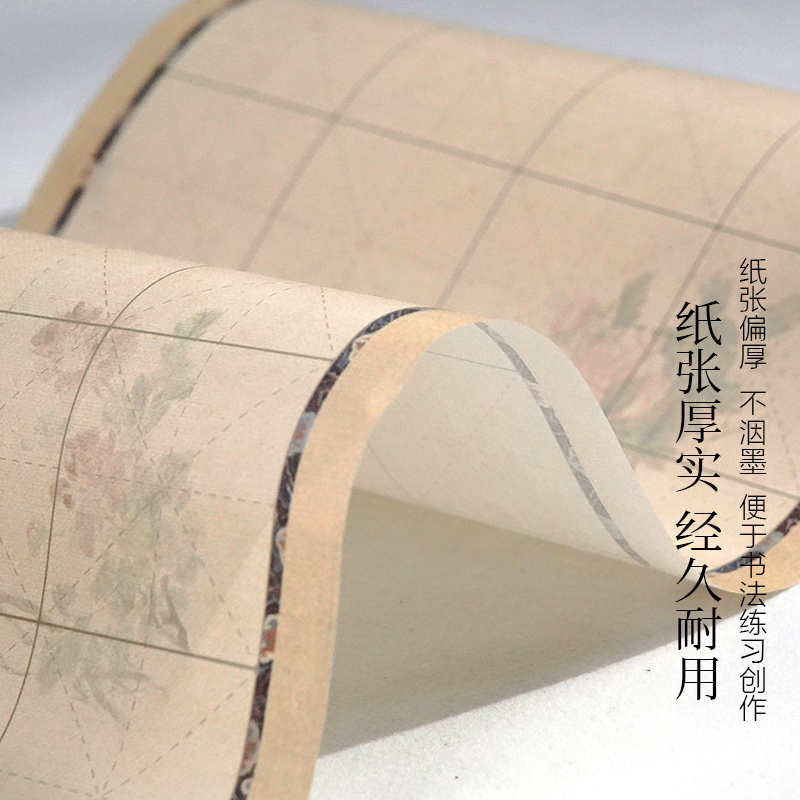 纸张偏厚 不洇墨 便于书法练习创作
纸张厚实 经久耐用